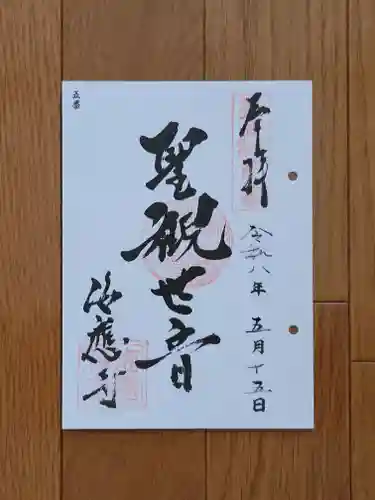 奉拝
令和八年 五月十五日
聖観世音
海應寺
五番